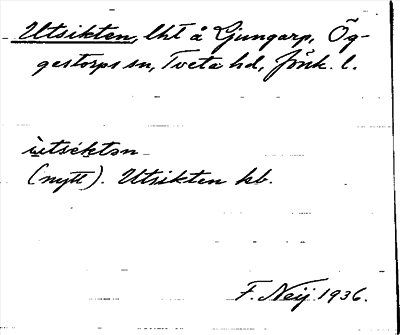 Utsikten, lht å Ljungarp, Ög-
gestorps sn, Tveta hd, Jönk. l.
(nytt). Utsikten kb.
F. Neij 1936.